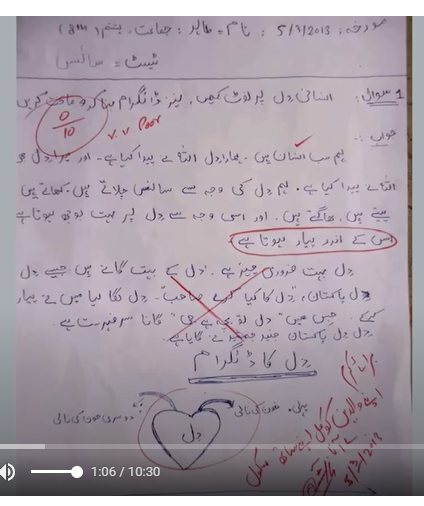 مورخہ: 5/3/2013 : نام = طاہر : جماعت = ہشتم (8TH)
ٹیسٹ = سائنس
سوال 1: انسانی دل پر نوٹ لکھیں، نیز ڈائگرام بنا کر وضاحت کریں
0/10
V.V Poor
جواب:
ہم سب انسان ہیں۔ ہمارا دل اللہ نے پیدا کیا ہے۔ اور میرا دل بھی
اللہ نے پیدا کیا ہے۔ ہم دل کی وجہ سے سانس چلاتے ہیں، کھاتے ہیں
پیتے ہیں، بھاگتے ہیں۔ اور اسی وجہ سے دل پر بہت بوجھ ہوتا ہے
اس کے اندر پیار ہوتا ہے
دل بہت ضروری چیز ہے۔ دل کے بہت گانے ہیں جیسے دل
دل پاکستان، "دل کا کیا کرے صاحب"۔ دل لگا لیا میں نے پیار
کرکے۔ جس میں "دل تو بچہ ہے جی" گانا سرفہرست ہے۔
دل دل پاکستان جنید جمشید نے گایا ہے۔
دل کا ڈائگرام
پہلی خون کی نالی
دوسری خون کی نالی
دل
اپنے والدین کو کل اپنے ساتھ سکول
لے آنا
5/3/2013
1:06 / 10:30